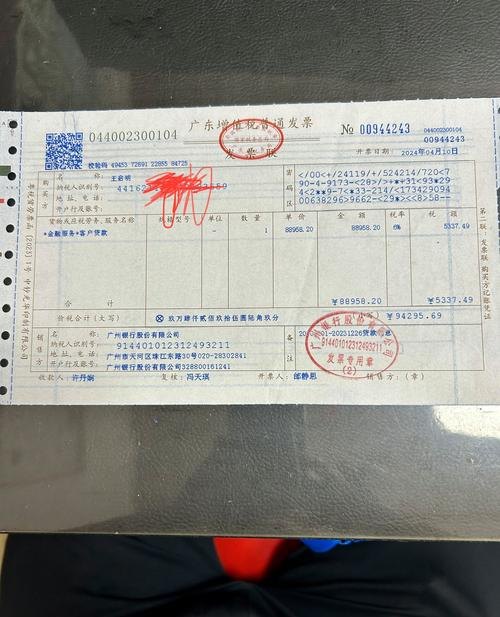 广东增值税普通发票
发票联
044002300104
№ 00944243
044002300104
00944243
校验码 49453 72891 22855 84725
开票日期：2024年04月10日
购买方
名 称：王启明
纳税人识别号：
地 址、电 话：
开户行及账号：
密码区
</00<+/24119/+/524214/720<7
90-4-9173-<28>/>+*+31<93*29
4<2**9-7<*33-214/<173429094
00638296>9662-<29*<<8>58--
货物或应税劳务、服务名称 规格型号 单位 数量 单价 金额 税率 税额
*金融服务*客户贷款 - 1 88958.20 88958.20 6% 5337.49
合 计 ￥88958.20 ￥5337.49
价税合计（大写） ⊗玖万肆仟贰佰玖拾伍圆陆角玖分 ￥94295.69
销售方
名 称：广州银行股份有限公司
纳税人识别号：914401012312493211
地 址、电 话：广州市天河区珠江东路30号020-28302841
开户行及账号：广州银行股份有限公司328800161241
备注
-20231226贷款
广州银行股份有限公司
914401012312493211
发票专用章
(2)
收款人：许丹娴 复核：冯天琪 开票人：邰静思 销售方：（章）
第一联：发票联 购买方记账凭证